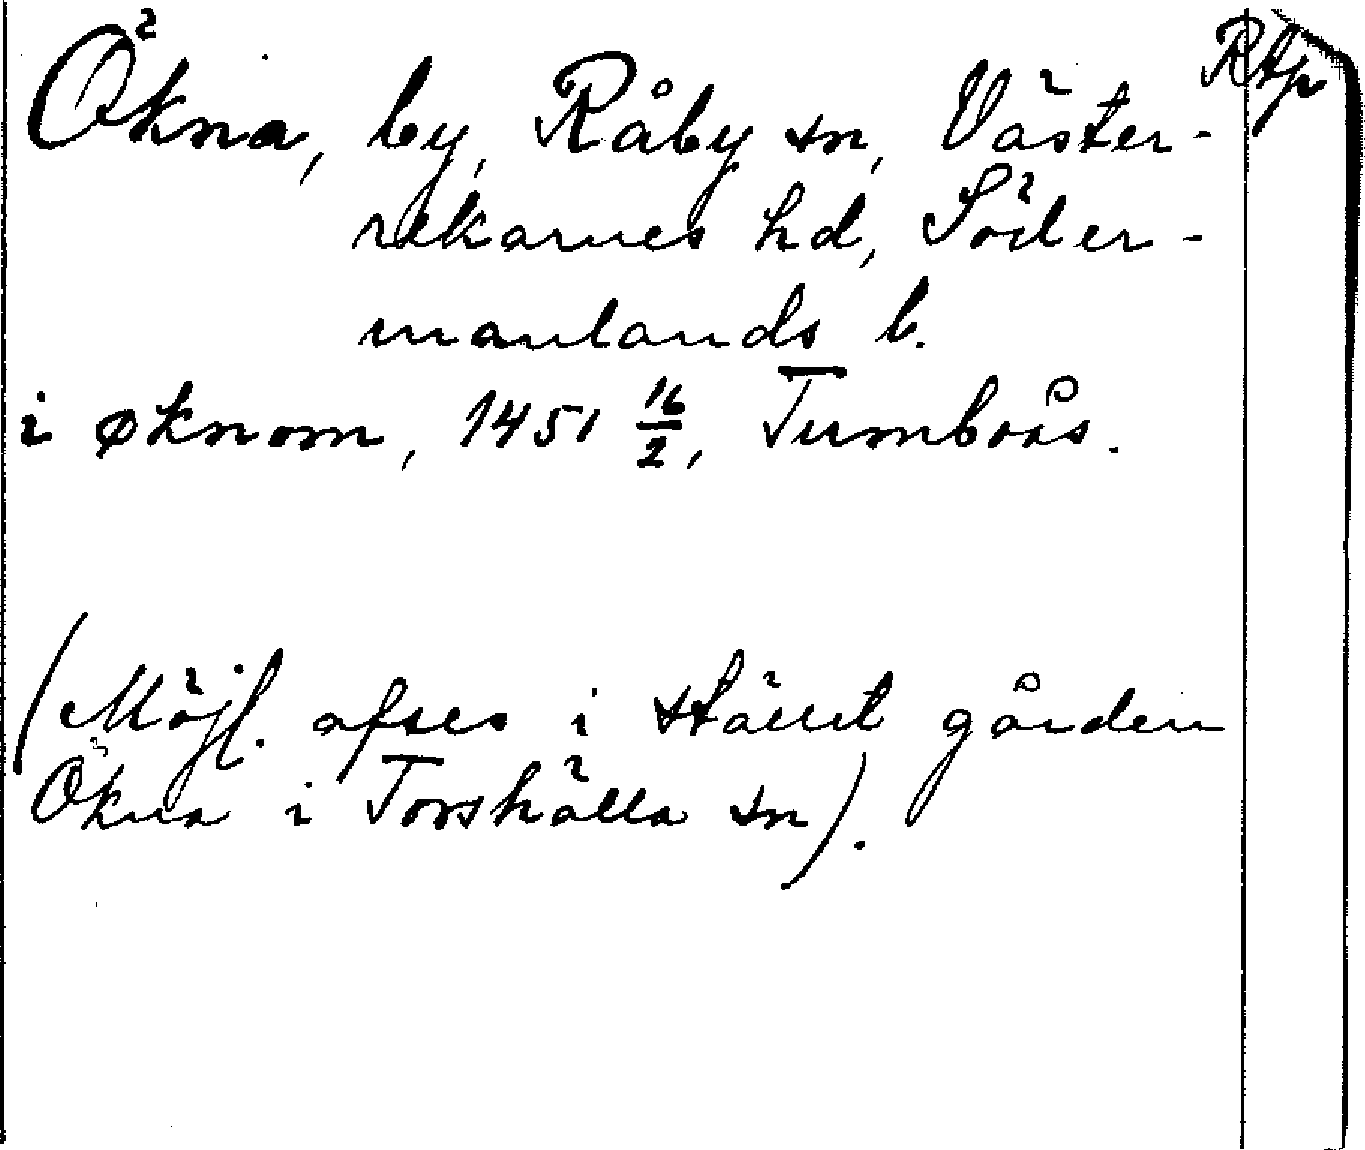 Ökna, by, Råby sn, Väster- Rtp
rekarnes hd, Söder-
manlands l.
i øknom, 1451 16/2, Tumboås.
(Möjl. afses i stället gården
Ökna i Torshälla sn).